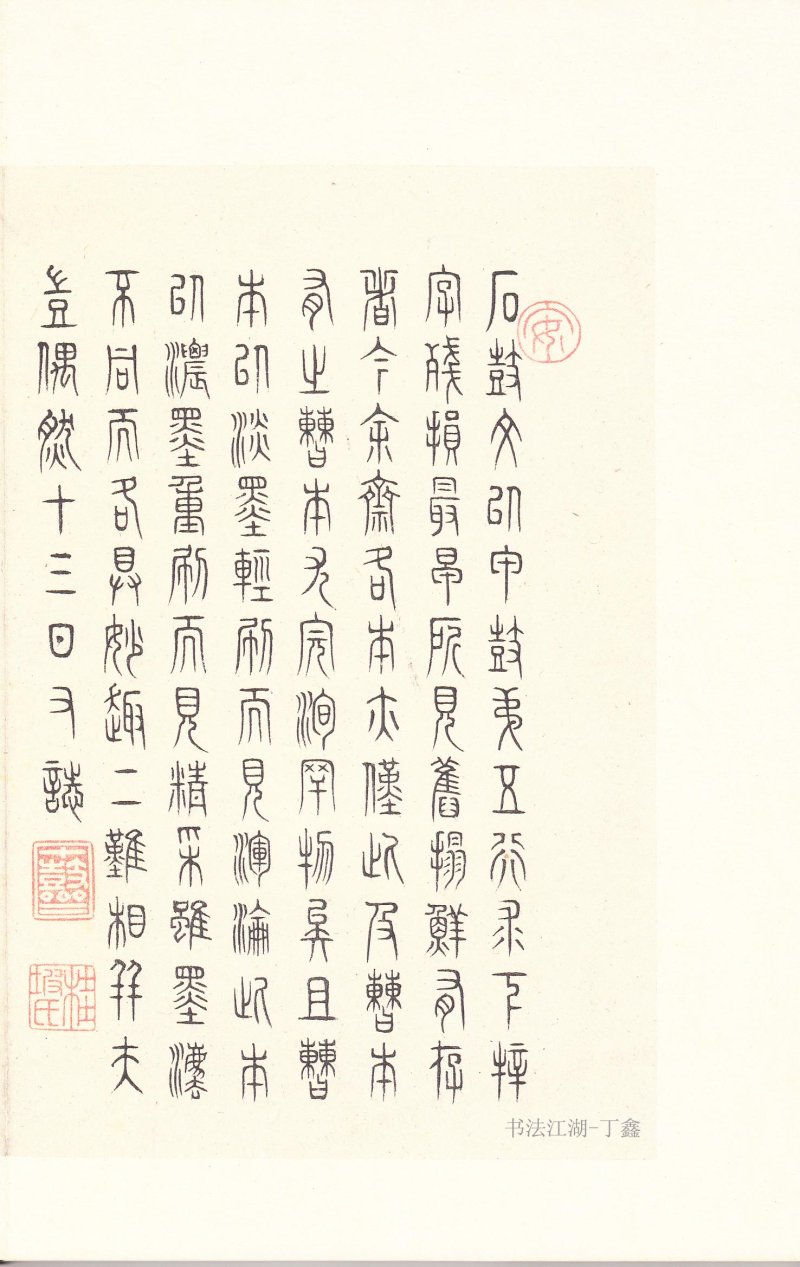 安
石鼓文以甲鼓弟五行求下
字殘損最早所見舊搨鮮有存
者今余齋各本亦僅此及曹本
有之曹本尤完洵罕物矣且曹
本以淡墨輕刷而見渾淪此本
以濃墨重刷而見精采雖墨灋
不同而各具妙趣二難相并夫
豈偶然十三日又誌
桂坡氏
书法江湖-丁鑫